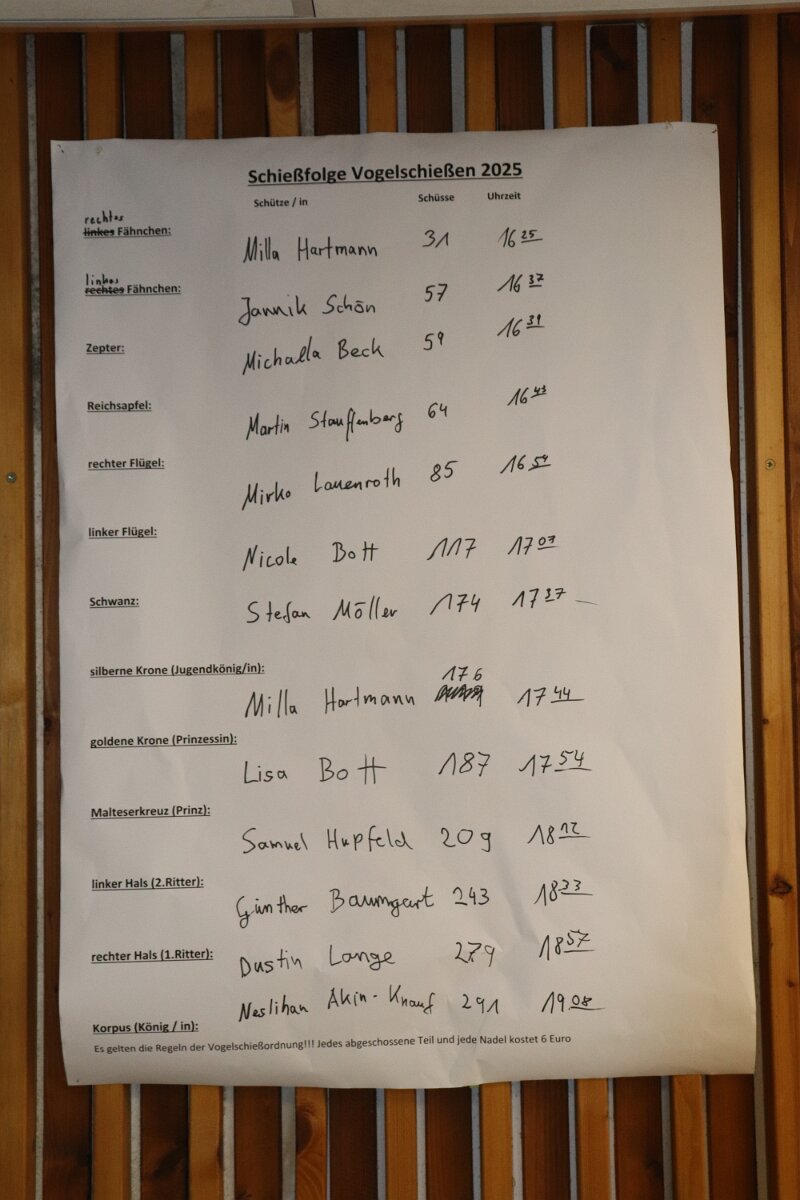 Schießfolge Vogelschießen 2025
Schütze / in Schüsse Uhrzeit
rechtes
linkes Fähnchen: Milla Hartmann 31 16 25
linkes
rechtes Fähnchen: Jannik Schön 57 16 37
Zepter: Michaela Beck 59 16 39
Reichsapfel: Martin Stauffenberg 64 16 43
rechter Flügel: Mirko Lauenroth 85 16 59
linker Flügel: Nicole Bott 117 17 07
Schwanz: Stefan Möller 174 17 37
silberne Krone (Jugendkönig/in): 176
Milla Hartmann 17 44
goldene Krone (Prinzessin):
Lisa Bott 187 17 54
Malteserkreuz (Prinz):
Samuel Hupfeld 209 18 12
linker Hals (2.Ritter):
Günther Baumgart 243 18 33
rechter Hals (1.Ritter): Dustin Lange 279 18 57
Neslihan Akin-Knauf 291 19 08
Korpus (König / in):
Es gelten die Regeln der Vogelschießordnung!!! Jedes abgeschossene Teil und jede Nadel kostet 6 Euro